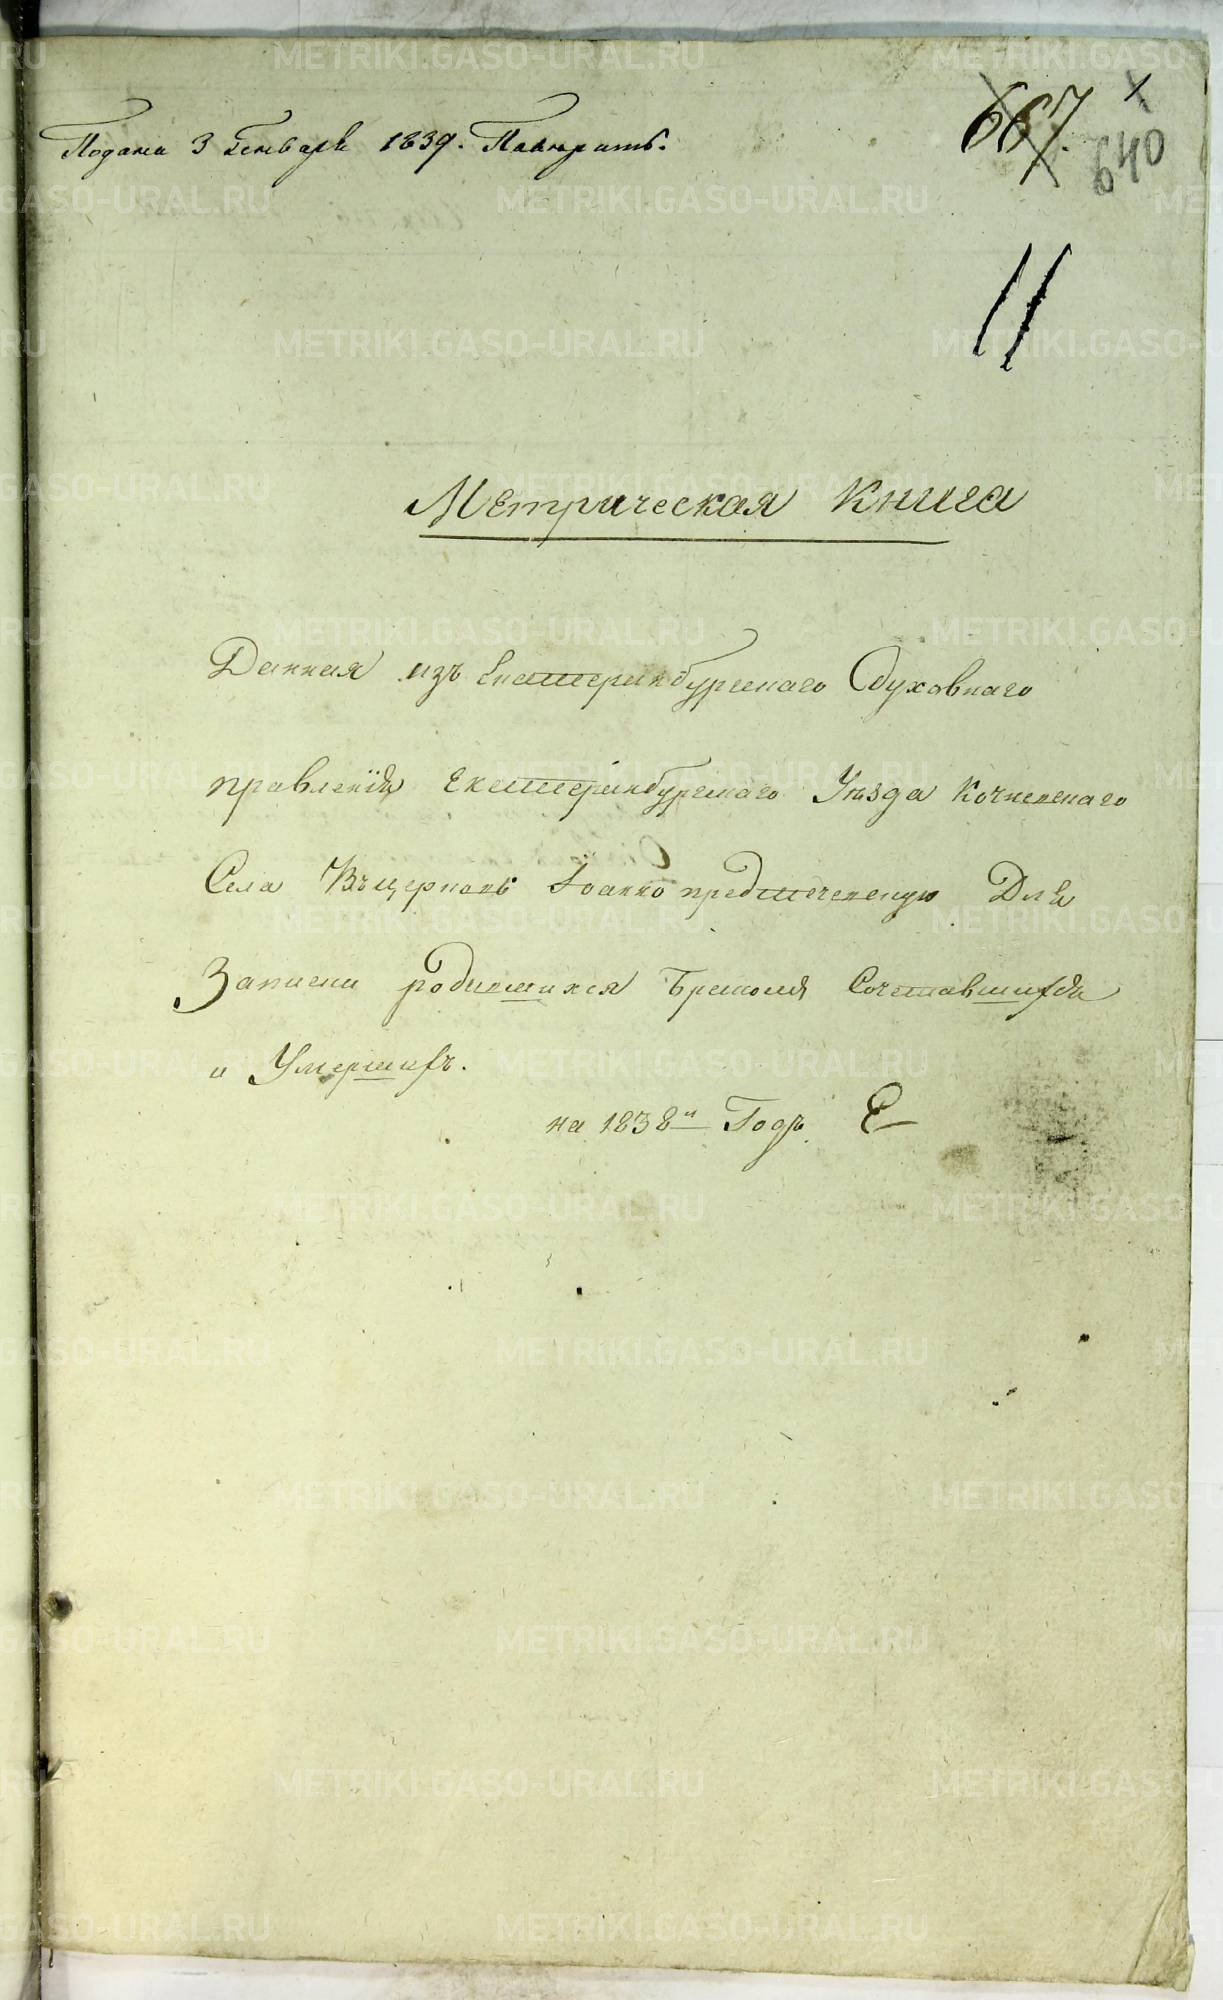 Подана 3 Генваря 1839.
667.
640
11
Метрическая Книга
Данная изъ Екатеринбургскаго Духовнаго
правленїя Екатеринбургскаго Уѣзда Кочневскаго
Села Въ церковь Іоанно предтеческую Для
Записки родившихся Бракомъ Сочетавшихся
и Умершихъ.
на 1838й Годъ